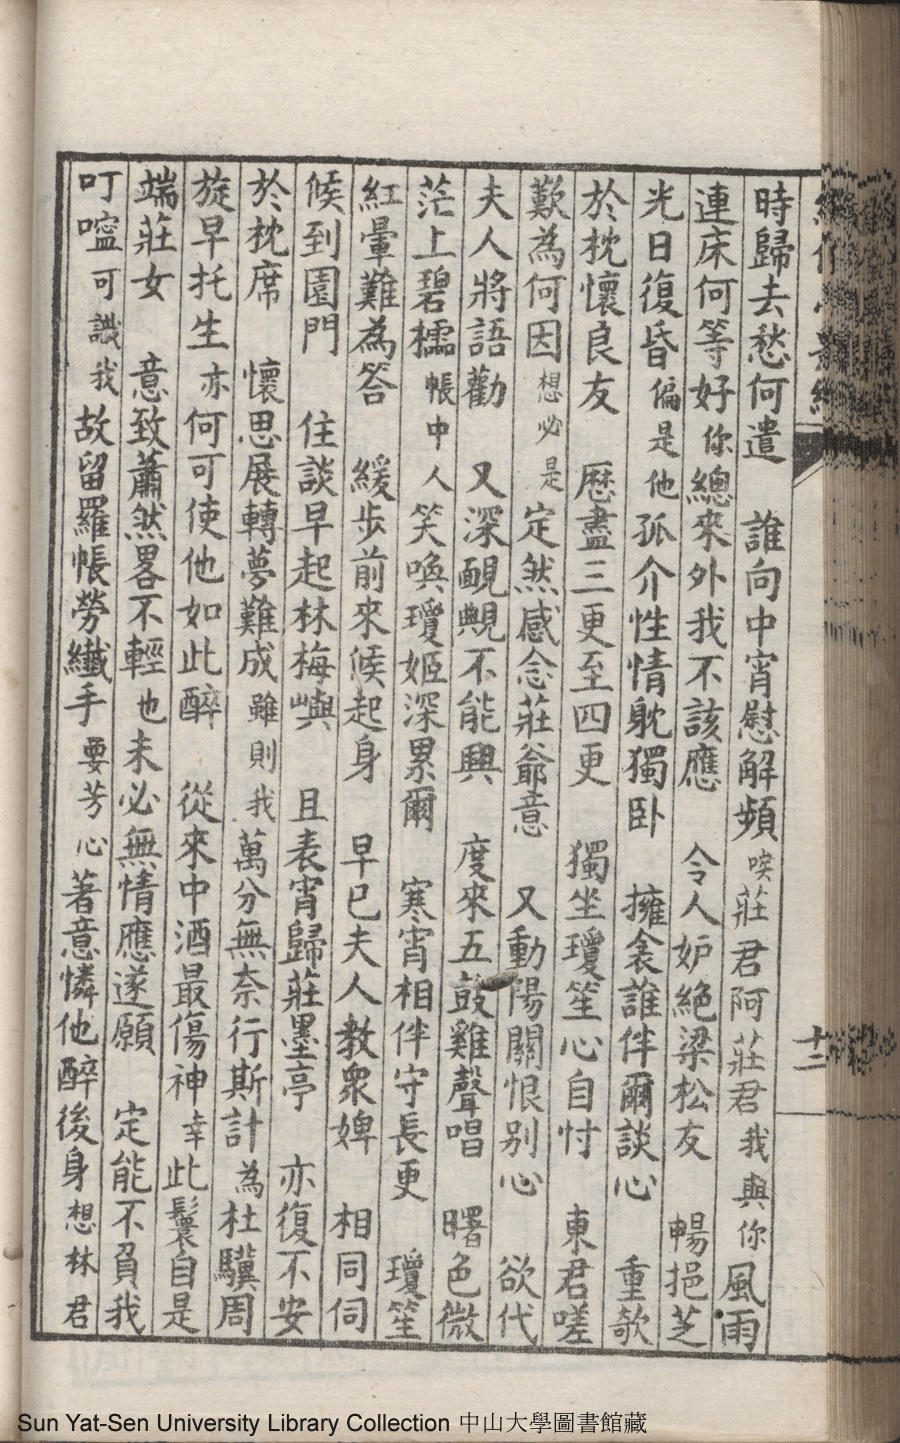 時歸去愁何遣　誰向中宵慰解頻唉莊君阿莊君我與你風雨
連床何等好你總來外我不該應　令人妒絕梁松友　暢挹芝
光日復昏偏是他孤介性情躭獨卧　擁衾誰伴爾談心　重欹
於枕懷良友　厯盡三更至四更　獨坐瓊笙心自忖　東君嗟
歎為何因想必是定然感念莊爺意　又動陽關恨别心　欲代
夫人將語勸　又深靦覥不能興　度來五鼓雞聲唱　曙色微
茫上碧櫺帳中人笑喚瓊姬深累爾　寒宵相伴守長更　瓊笙
紅暈難為答　緩步前來候起身　早已夫人教衆婢　相同伺
候到園門　住談早起林梅嶼　且表宵歸莊墨亭　亦復不安
於枕席　懷思展轉夢難成雖則我萬分無奈行斯計為杜驥周
旋早托生亦何可使他如此醉　從來中酒最傷神幸此鬟自是
端莊女　意致蕭然畧不輕也未必無情應遂願　定能不負我
叮嚀可識我故留羅帳勞纖手要芳心著意憐他醉後身想林君
十二
Sun Yat-Sen University Library Collection 中山大學圖書館藏